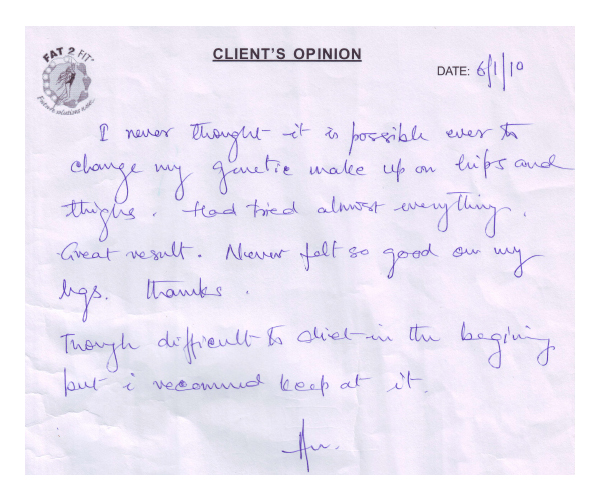 FAT 2 FIT
CLIENT'S OPINION
DATE: 6/1/10
I never thought it is possible ever to
change my genetic make up on hips and
thighs. Had tried almost everything.
Great result. Never felt so good on my
legs. thanks.
Though difficult to diet in the begining
but i recommend keep at it.